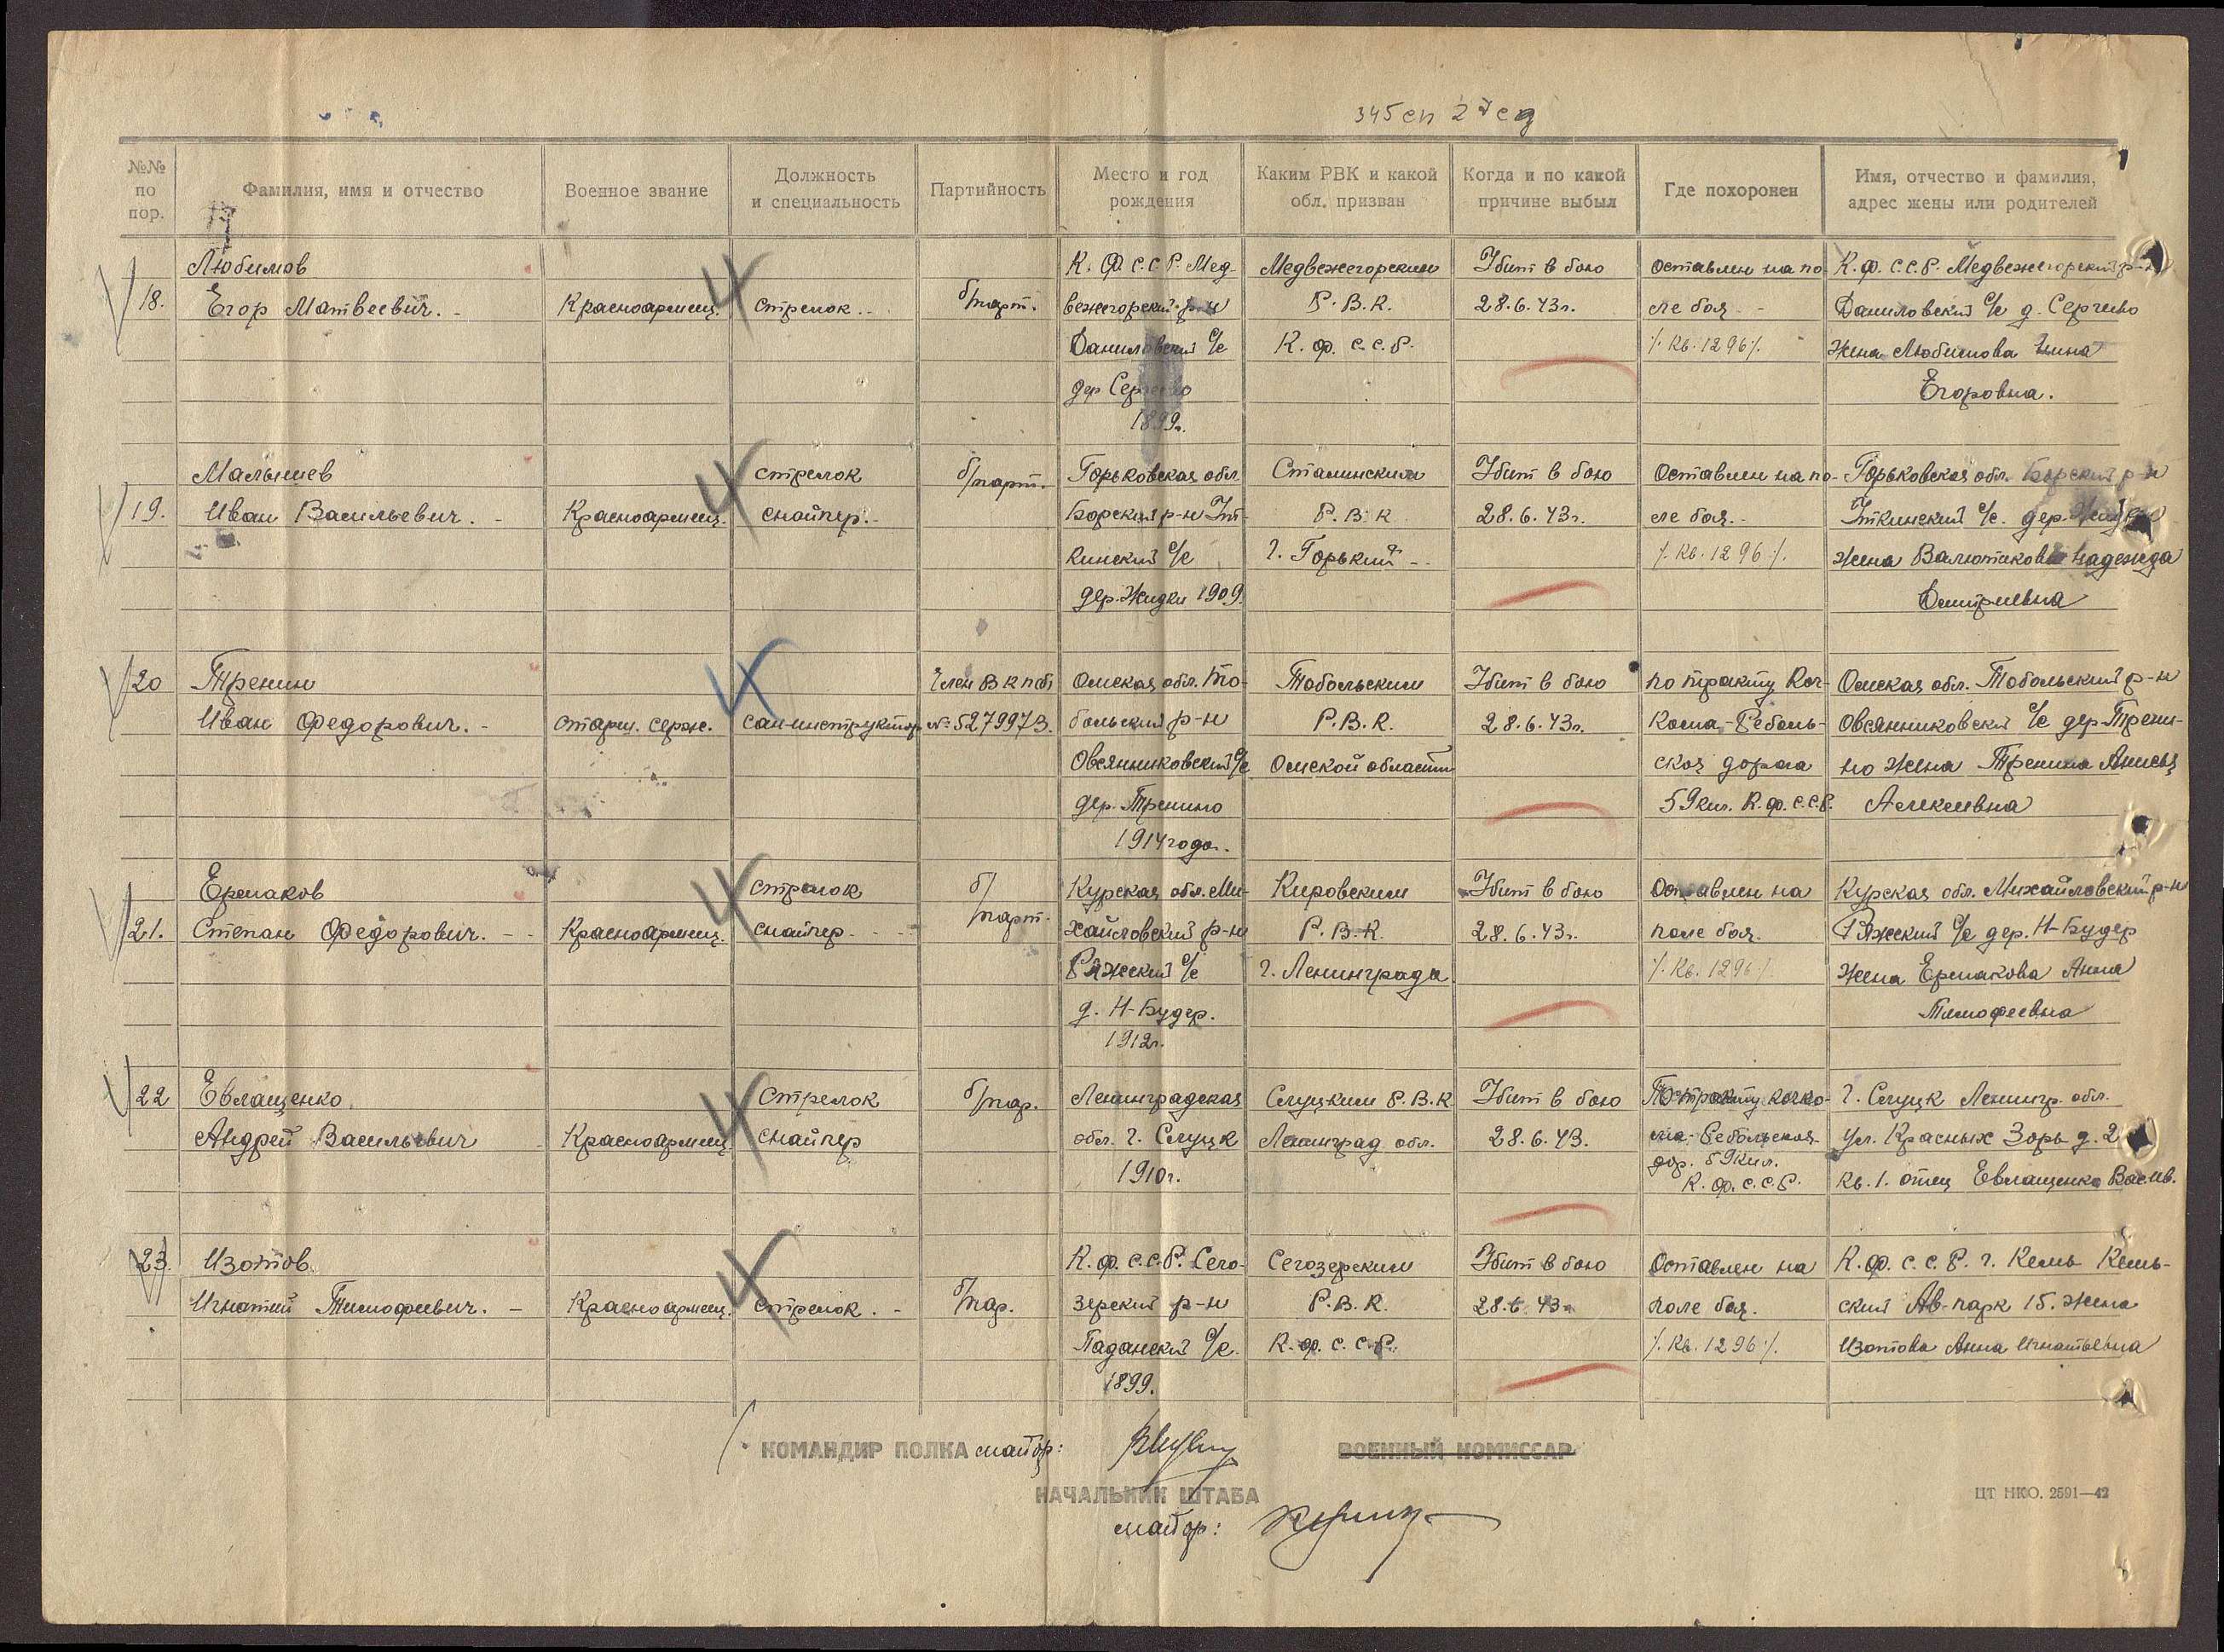 345 сп 27 сд
№№ по пор.
Фамилия, имя и отчество
Военное звание
Должность и специальность
Партийность
Место и год рождения
Каким РВК и какой обл. призван
Когда и по какой причине выбыл
Где похоронен
Имя, отчество и фамилия, адрес жены или родителей
18.
Любимов
Егор Матвеевич.
Красноармеец.
стрелок
б/парт.
К.Ф.С.С.Р. Мед-
вежегорский р-н
Даниловский с/с
дер Сергеево
1899г.
Медвежегорским
Р.В.К.
К.Ф.С.С.Р.
Убит в бою
28.6.43г.
Оставлен на по-
ле боя
/. Кв. 1296 /.
К.Ф.С.С.Р. Медвежегорский р-н
Даниловский с/с д. Сергеево
жена Любимова
Егоровна.
19.
Мальцев
Иван Васильевич.
Красноармеец.
стрелок
снайпер.
б/парт.
Горьковская обл
Борский р-н Ит-
кинский с/с
дер. Жидки 1909.
Сталинским
Р.В.К
г. Горький
Убит в бою
28.6.43г.
Оставлен на по-
ле боя.
/. Кв. 1296 /.
Горьковская обл. Борский р-н
Иткинский с/с. дер.
жена Надежда
Дмитриевна
20
Тренин
Иван Федорович.
старш. серж.
сан-инструктор
Член ВКП(б)
№ 5279973.
Омская обл. То-
больский р-н
Овсянниковский с/с
дер. Тренино
1914 года.
Тобольским
Р.В.К.
Омской области
Убит в бою
28.6.43г.
по тракту Коч-
кома-Реболь-
ская дорога
59 кил. К.Ф.С.С.Р.
Омская обл. Тобольский р-н
Овсянниковский с/с дер. Трени-
но жена Тренина
Алексеевна
21.
Ермаков
Степан Федорович.
Красноармеец.
стрелок
снайпер
б/
парт.
Курская обл. Ми-
хайловский р-н
Ряжский с/с
д. Н-Будер.
1912г.
Кировским
Р.В.К.
г. Ленинграда
Убит в бою
28.6.43г.
Оставлен на
поле боя.
/. Кв. 1296 /.
Курская обл. Михайловский р-н
Ряжский с/с дер. Н-Будер
жена Ермакова Анна
Тимофеевна
22
Евлащенко
Андрей Васильевич
Красноармеец.
Стрелок
снайпер
б/пар.
Ленинградская
обл. г. Слуцк
1910г.
Слуцким Р.В.К
Ленинград обл.
Убит в бою
28.6.43.
По тракту Кочко-
ма-Ребольская
дор. 59 кил.
К.Ф.С.С.Р.
г. Слуцк Ленингр. обл.
ул. Красных Зорь д. 2
кв. 1. отец Евлащенко Васил.
23.
Изотов
Игнатий Тимофеевич.
Красноармеец.
стрелок.
б/пар.
К.Ф.С.С.Р. Сего-
зерский р-н
Паданский с/с.
1899.
Сегозерским
Р.В.К.
К.Ф.С.С.Р.
Убит в бою
28.6.43г
Оставлен на
поле боя.
/. Кв. 1296 /.
К.Ф.С.С.Р. г. Кемь Кем-
ский Ав-парк 15. жена
Изотова Анна Игнатьевна
КОМАНДИР ПОЛКА майор:
ВОЕННЫЙ КОМИССАР
НАЧАЛЬНИК ШТАБА
майор:
ЦТ НКО. 2591—42